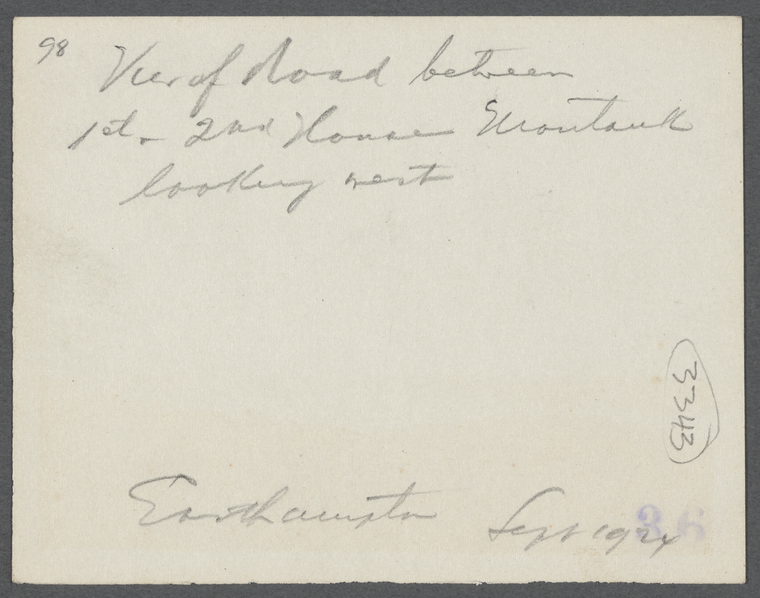 98
View of Road between
1st - 2nd House Montauk
looking west
3343
Easthampton Sept 1924
36